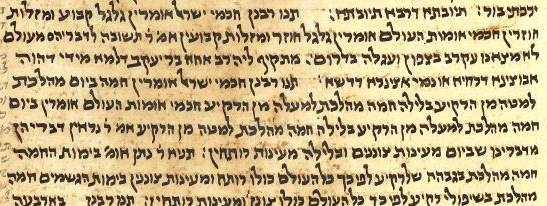 ידכתי בור׳: תיובתא דרבא תיובתא: תנו רבנן חכמי ישר׳ אומרין גלגל קבוע ומזלות
חוזרין חכמי אומות העולם אומרין גלגל חוזר ומזלות קבועין אמ׳ ר׳ תשובה לדבריהם מעולם
לא מצאנו עקרב בצפון ועגלה בדרום: מתקיף לה רב אחא בר יעקב דלמא מידי דהוה
אבוצינא דרחיא או נמי אצינורא דדשא׳ תנו רבנן חכמי ישר׳ אומרין חמה ביום מהלכת
למטה מן הרקיע בלילה חמה מהלכת למעלה מן הרקיע חכמי אומות העולם אומרין ביום
חמה מהלכת למעלה מן הרקיע בלילה חמה מהלכת למטה מן הרקיע אמ׳ ר׳ נראין דבריהן
מדברינו שביום מעינות צוננים ובלילה מעינות רותחין: תניא ר׳ נתן אומ׳ בימות החמה
חמה מהלכת בגבהה של רקיע לפיכך כל העולם כולו רותח ומעינות צוננין בימות הגשמים חמה
מהלכת בשיפולי רקיע לפיכך כל העולם כולו צונן ומעינות רותחין: תנו רבנן באדבעה